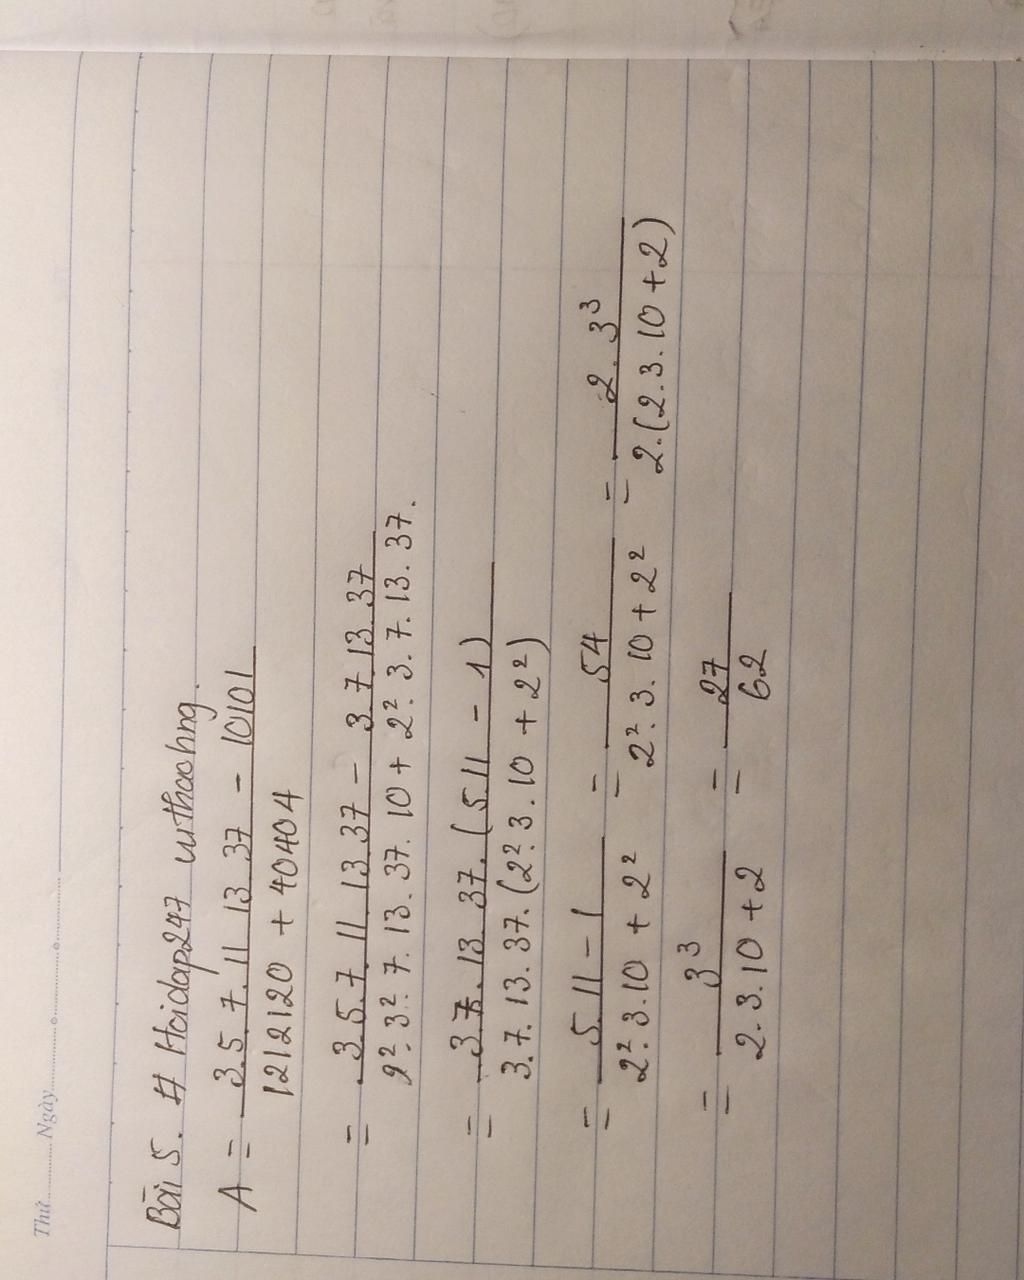 Thứ............Ngày.............................
Bài 5. # Hoidap247 withaohng.
A = 3.5.7.11.13.37 - 10101
1212120 + 40404
= 3.5.7.11.13.37 - 3.7.13.37
2².3².7.13.37.10 + 2².3.7.13.37.
= 3.7.13.37.(5.11 - 1)
3.7.13.37.(2².3.10 + 2²)
= 5.11 - 1 = 54 = 2.3³
2².3.10 + 2² 2².3.10 + 2² 2.(2.3.10 + 2)
= 3³ = 27
2.3.10 + 2 62